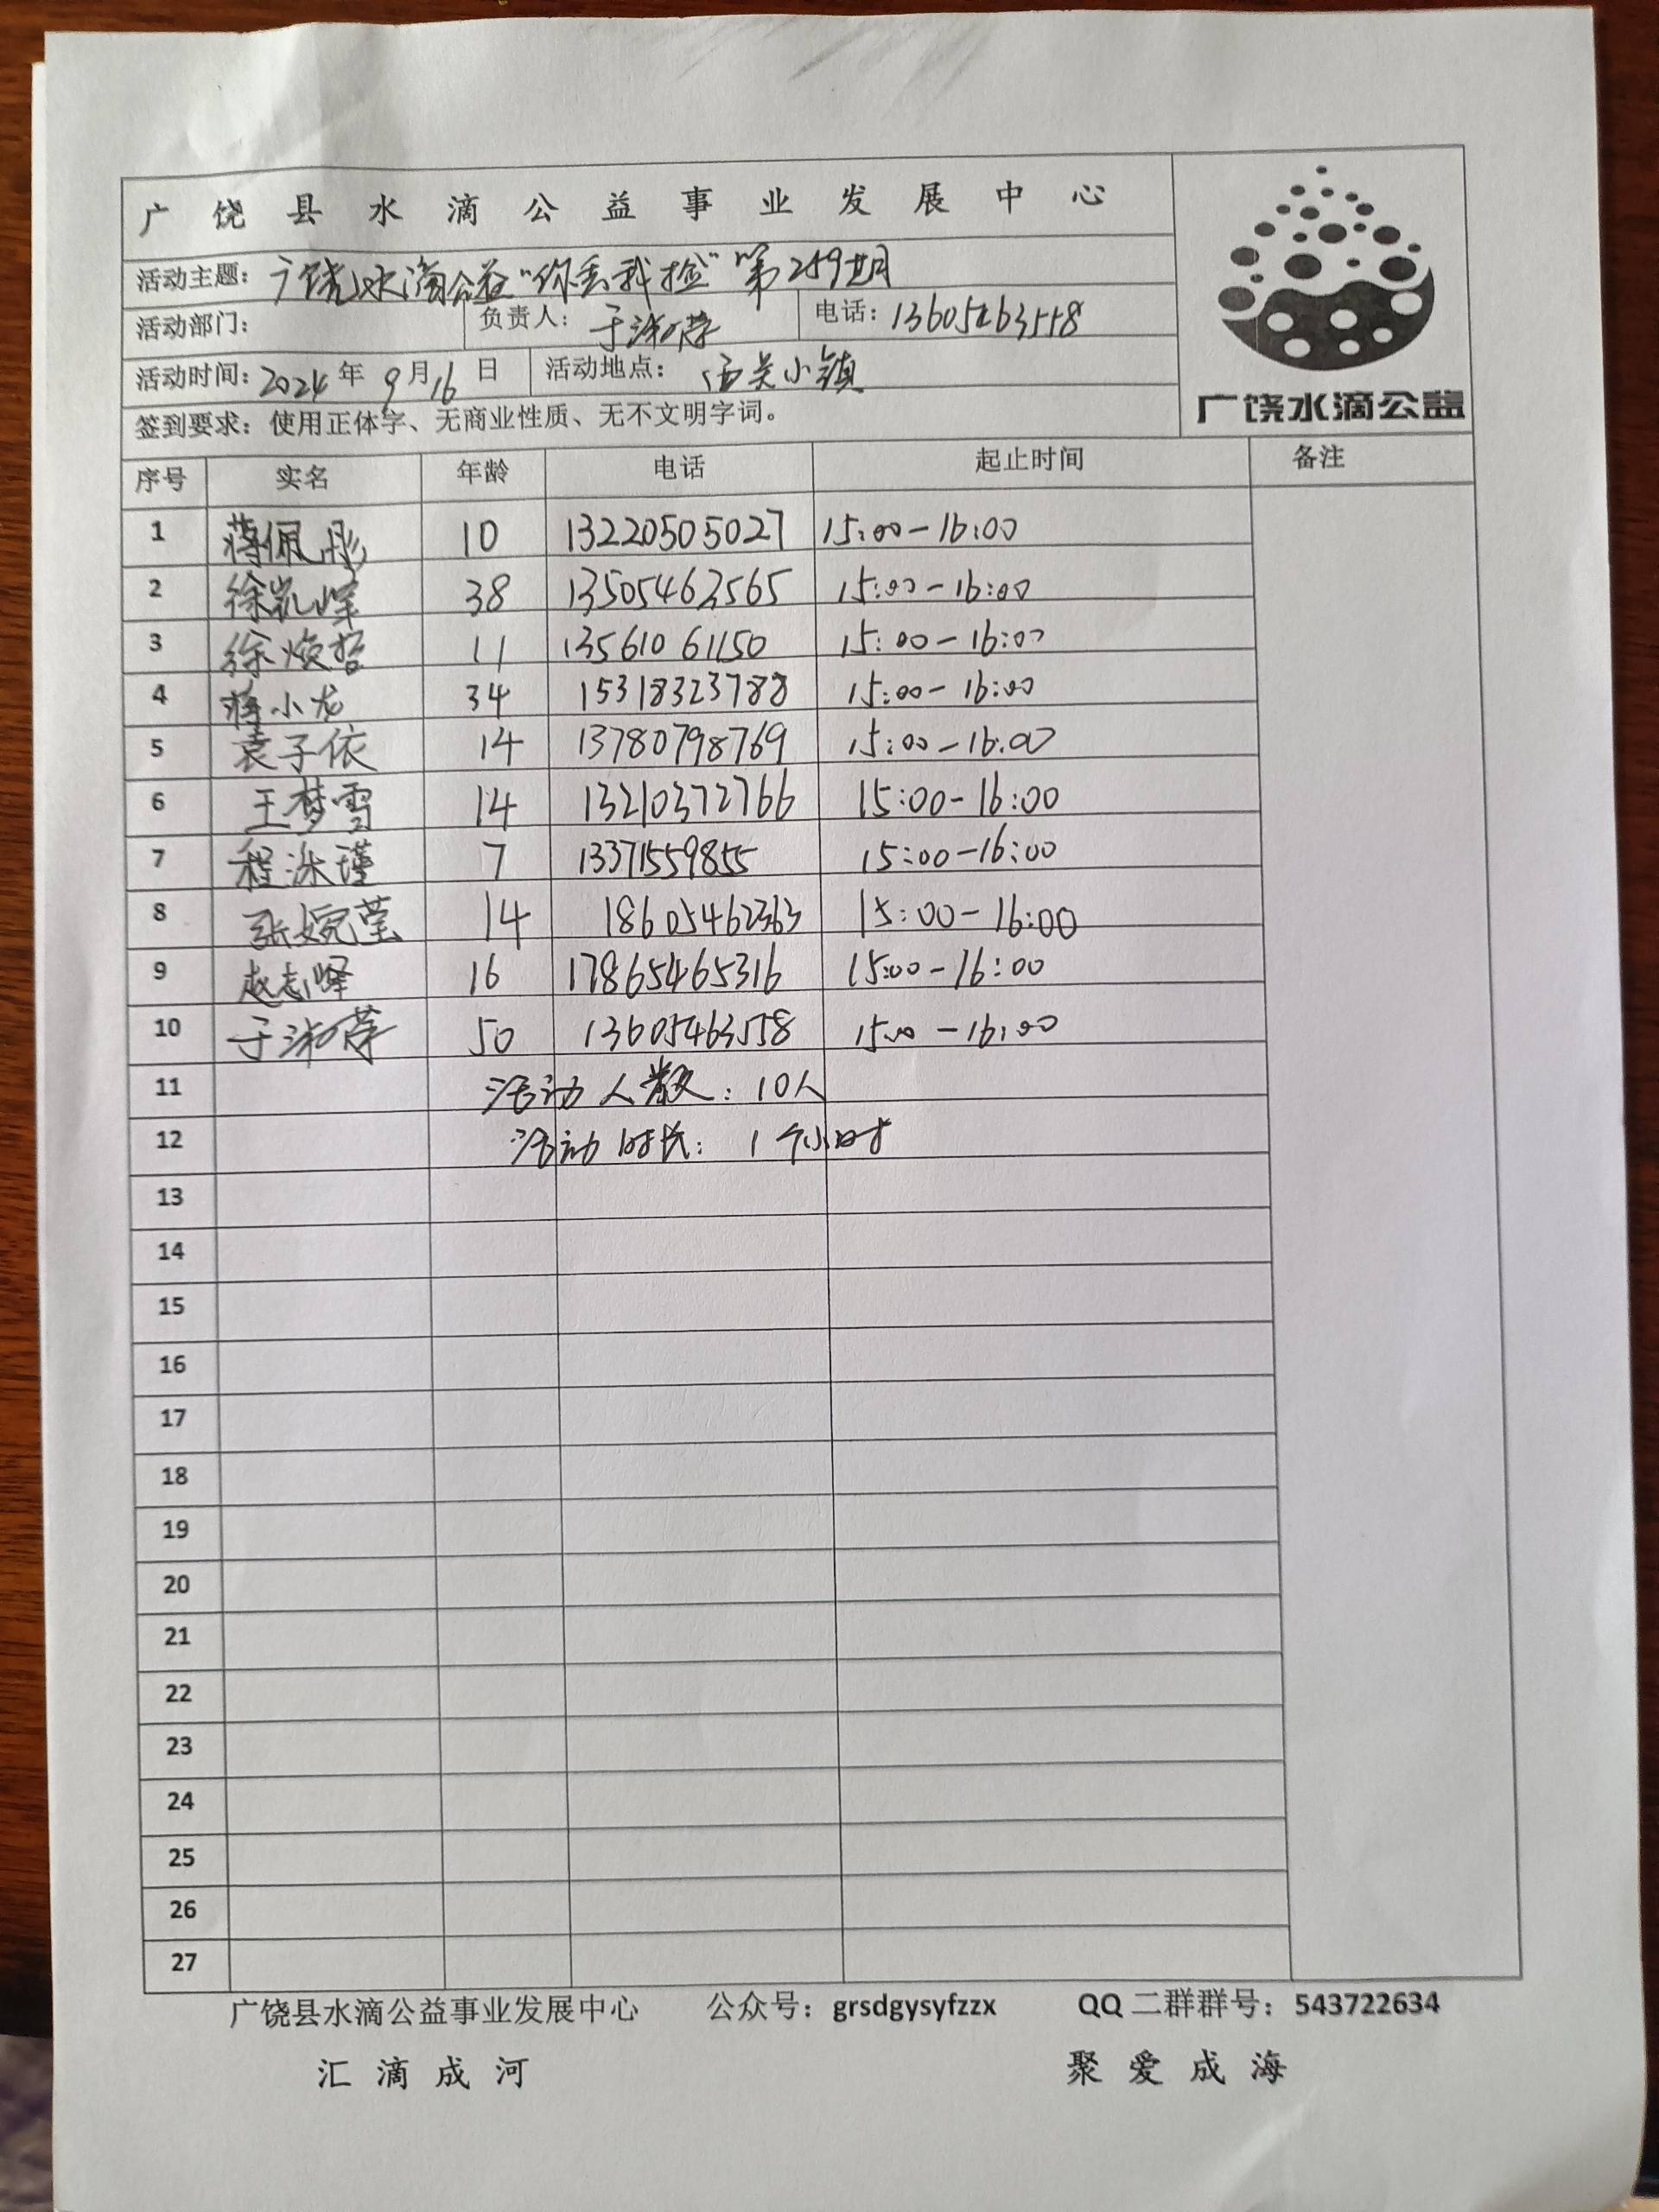 广饶县水滴公益事业发展中心
活动主题：广饶水滴公益“你丢我捡”第259期
活动部门： 负责人：于淑萍 电话：13605463558
活动时间：2024年9月16日 活动地点：西关小镇
广饶水滴公益
签到要求：使用正体字、无商业性质、无不文明字词。
序号 实名 年龄 电话 起止时间 备注
1 蒋佩彤 10 13220505027 15:00-16:00
2 徐凯峰 38 13505463565 15:00-16:00
3 徐焌哲 11 13561061150 15:00-16:00
4 蒋小龙 34 15318323788 15:00-16:00
5 袁子依 14 13780798769 15:00-16:00
6 王梦雪 14 13210372766 15:00-16:00
7 程洣瑾 7 13371559855 15:00-16:00
8 张婉莹 14 18605462363 15:00-16:00
9 赵志峄 16 17865465316 15:00-16:00
10 于淑萍 50 13605463558 15:00-16:00
11 活动人数：10人
12 活动时长：1个小时
13
14
15
16
17
18
19
20
21
22
23
24
25
26
27
广饶县水滴公益事业发展中心 公众号：grsdgysyfzzx QQ二群群号：543722634
汇滴成河 聚爱成海